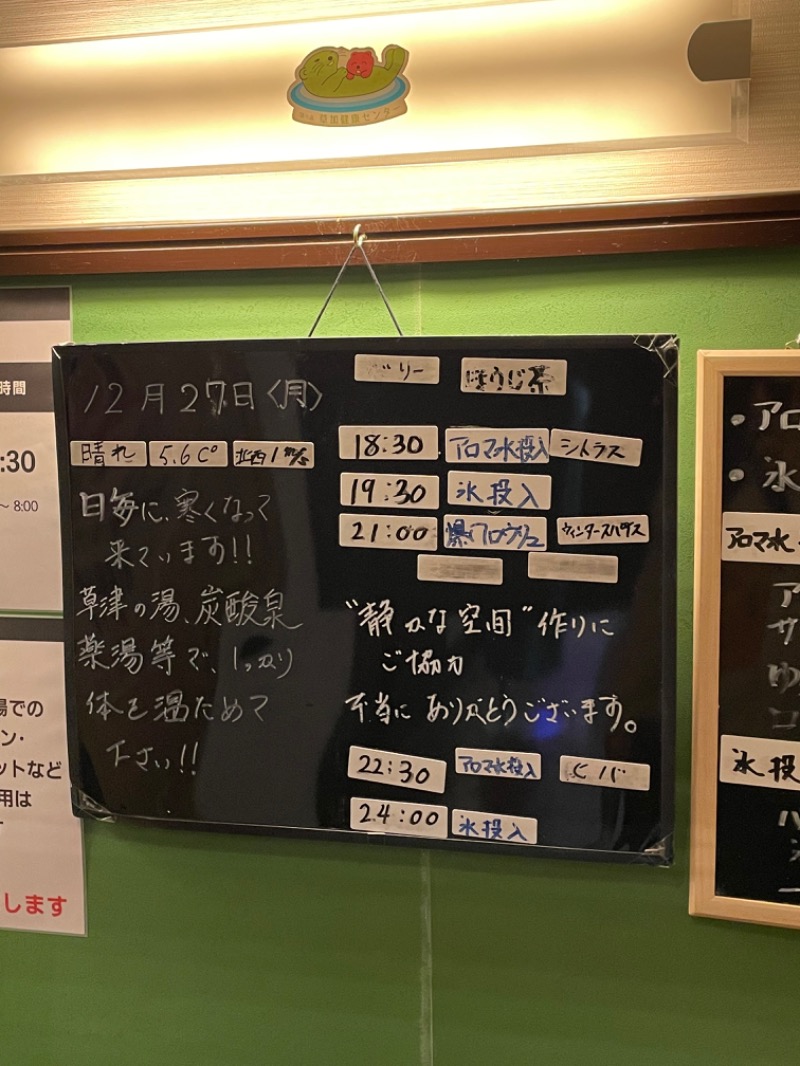 草加健康センター
12月27日〈月〉
晴れ 5.6C° 北西1m/s
日毎に、寒くなって
来ています!!
草津の湯、炭酸泉
薬湯等で、しっかり
体を温ためて
下さい!!
ほうじ茶
18:30 アロマ水投入 シトラス
19:30 氷投入
21:00 爆アロウリュ ウィンタースパイス
"静かな空間"作りに
ご協力
本当にありがとうございます。
22:30 アロマ水投入 ヒバ
24:00 氷投入
時間
:30
～8:00
場での
ン・
ットなど
用は
します
・アロ
・氷
アロマ水
ア
サ
ゆ
コ
氷投